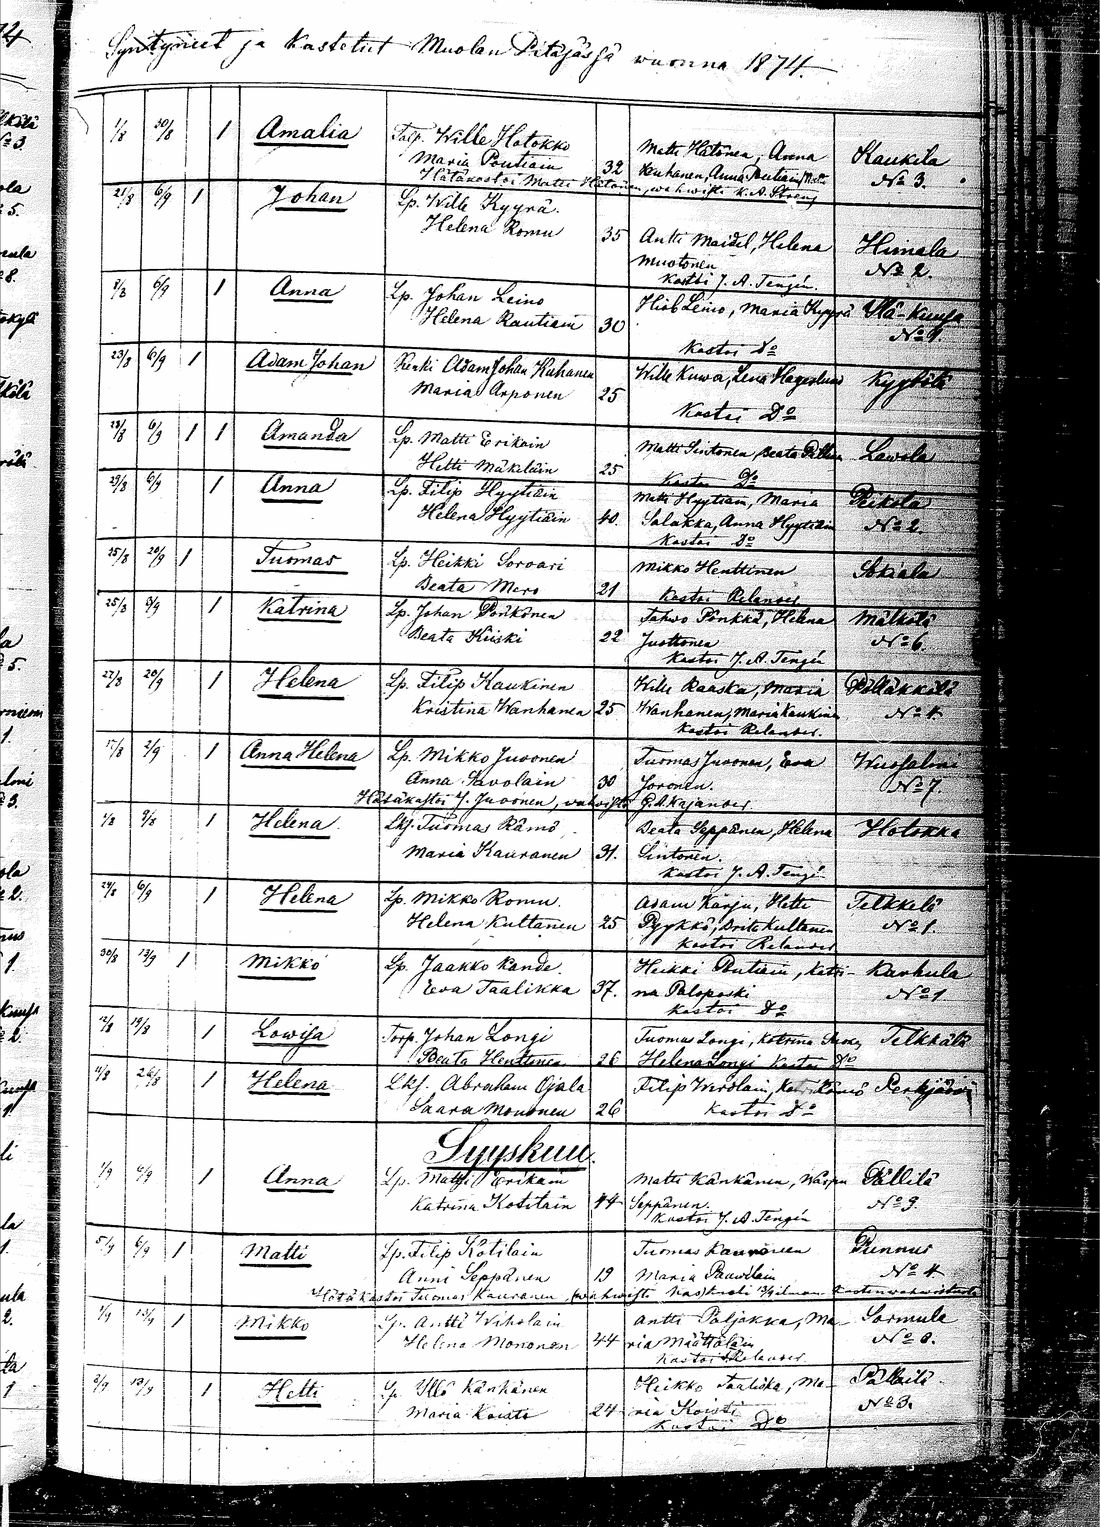 Syntyneet ja Kastetut Muolan Pitäjässä wuonna 1874.
1/8 30/8 1 Amalia Talp. Wille Hotokko Matti Hätönen, Anna Kaukila
Maria Poutiain 32 Kuhanen, Anna Poutiain, Matti No 3.
Hätäkastoi Matti Hätönen, wahwisti K. A. Streng
21/8 6/9 1 Johan Lp. Wille Kyyrä.
Helena Romu 35 Antti Maidel, Helena Humala
Muotonen No 2.
Kastoi J. A. Tengén.
6/9 1 Anna Lp. Johan Leino Hiob Leino, Maria Kyyrä Ylä-Kuusa
Helena Rautiain 30 No 1.
Kastoi Do
23/8 6/9 1 Adam Johan Renki Adam Johan Kuhanen Wille Kuwa, Lena Hagerlund Kyytölä
Maria Arponen 25
Kastoi Do
23/8 6/9 1 1 Amanda Lp. Matti Erikäin Matti Sintonen, Beata Lawola
Hetti Mäkeläin 25 Kastoi Do
6/9 1 Anna Lp. Filip Hyytiäin Matti Hyytiäin, Maria Peikola
Helena Hyytiäin 40. Salakka, Anna Hyytiäin No 2.
Kastoi Do
25/8 20/9 1 Tuomas Lp. Heikki Sorvari Mikko Henttinen Sokiala
Beata Mero 21 Kastoi Relander
25/8 1 Katrina Lp. Johan Pönkönen Pönkkä, Helena Mälkölä
Beata Kiiski 22 Juottonen No 6.
Kastoi J. A. Tengén
22/8 20/9 1 Helena Lp. Filip Kaukinen Wille Raaska, Maria Pölläkkälä
Kristina Wanhanen 25 Wanhanen, Maria Kaukinen No 4
Kastoi Relander.
17/8 2/9 1 Anna Helena Lp. Mikko Juvonen Tuomas Juvonen, Eva Wuosalmi
Anna Savolain 30 Joronen. No 7.
Hätäkastoi J. Juvonen, wahwisti G. A. Kajander
1/8 9/8 1 Helena. Lksj. Tuomas Rämö Beata Seppänen, Helena Hotokka
Maria Kauranen 31. Sintonen.
Kastoi J. A. Tengén
24/8 6/9 1 Helena Lp. Mikko Romu. Adam Karju, Hetti Telkkelä
Helena Kultanen 25 Pyykkö, Brita Kultanen No 1.
Kastoi Relander
30/8 13/9 1 Mikko Lp. Jaakko Rande. Heikki Poutiain, Katri- Karhula
Eva Taalikka 37. na Paloposki No 1
Kastoi Do
12/8 19/8 1 Lowisa Torp. Johan Longi Tuomas Longi, Katrina Telkkälä
Beata Henttonen 26 Helena Longi Kastoi Do
4/8 26/8 1 Helena Lksj. Abraham Ojala Filip Wirolain, Perkjärvi
Saara Mononen 26 Kastoi Do
Syyskuu.
1/9 4/9 1 Anna Lp. Matti Erikäin Matti Känkänen, Waspu Pällilä
Katrina Kotilain 44 Seppänen. No 3
Kastoi J. A. Tengén
5/9 6/9 1 Matti Lp. Filip Kotilain Tuomas Kauranen Punnus
Anni Seppänen 19 Maria Pauwilain No 4
Hätäkastoi Tuomas Kauranen (wahwisti
1/9 13/9 1 Mikko Lp. Antti Wiholain Antti Paljakka, Ma- Sormula
Helena Mononen 44 ria Määttäläin No 8.
Kastoi Relander
2/9 13/9 1 Hetti Lp. Yllö Känkänen Heikko Taalikka, Ma- Pällilä
Maria Koisti 24 ria Koisti No 3.
Kastoi Do